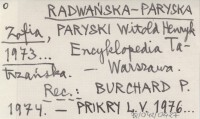 0
RADWAŃSKA-PARYSKA
Zofia, PARYSKI Witold Henryk
1973... Encyklopedia Ta-
trzańska. — Warszawa.
Rec.: BURCHARD P.
1974. — PRIKRY L.V. 1976...